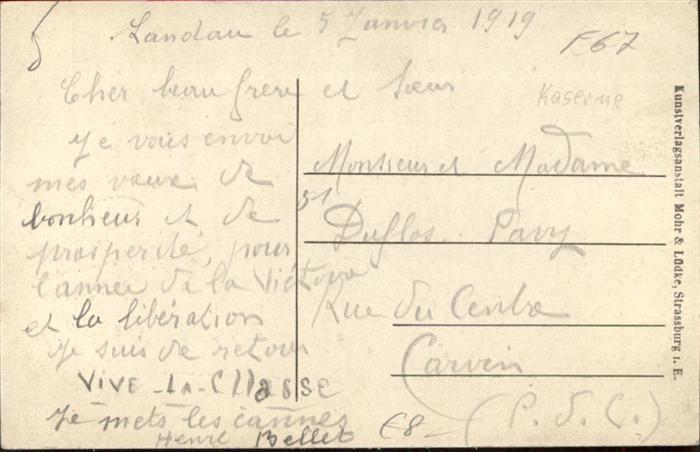 Landau le 5 Janvier 1919
F67
Kaserne
Cher beau frere et soeur
Je vous envoi
mes voeux de
bonheur et de
prosperité, pour
l'année de la Victoire
et la libération
Je suis de retour
VIVE-LA-CLLASSE
Je mets les cannes
Henri Bellet
Monsieur et Madame
51
Duflos Pavy
Rue du Centre
Carvin
(P. d. C.)
€8-
Kunstverlagsanstalt Mohr & Lüdke, Strassburg i. E.